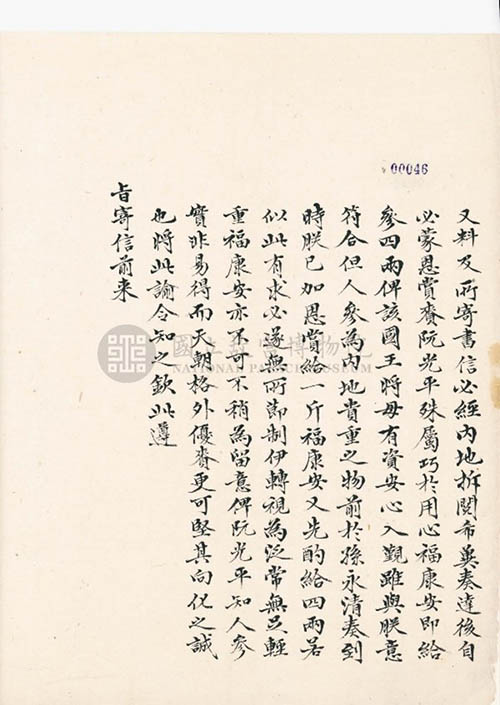 00046
又料及所寄書信必經內地拆閱希冀奏達後自
必蒙恩賞賚阮光平殊屬巧於用心福康安即給
參四兩俾該國王將母有資安心入覲雖與朕意
符合但人參為內地貴重之物前於孫永清奏到
時朕已加恩賞給一斤福康安又先酌給四兩若
似此有求必遂無所節制伊轉視為泛常無足輕
重福康安亦不可不稍為留意俾阮光平知人參
實非易得而天朝格外優賚更可堅其向化之誠
也將此諭令知之欽此遵
旨寄信前来
國立故宮博物院
NATIONAL PALACE MUSEUM